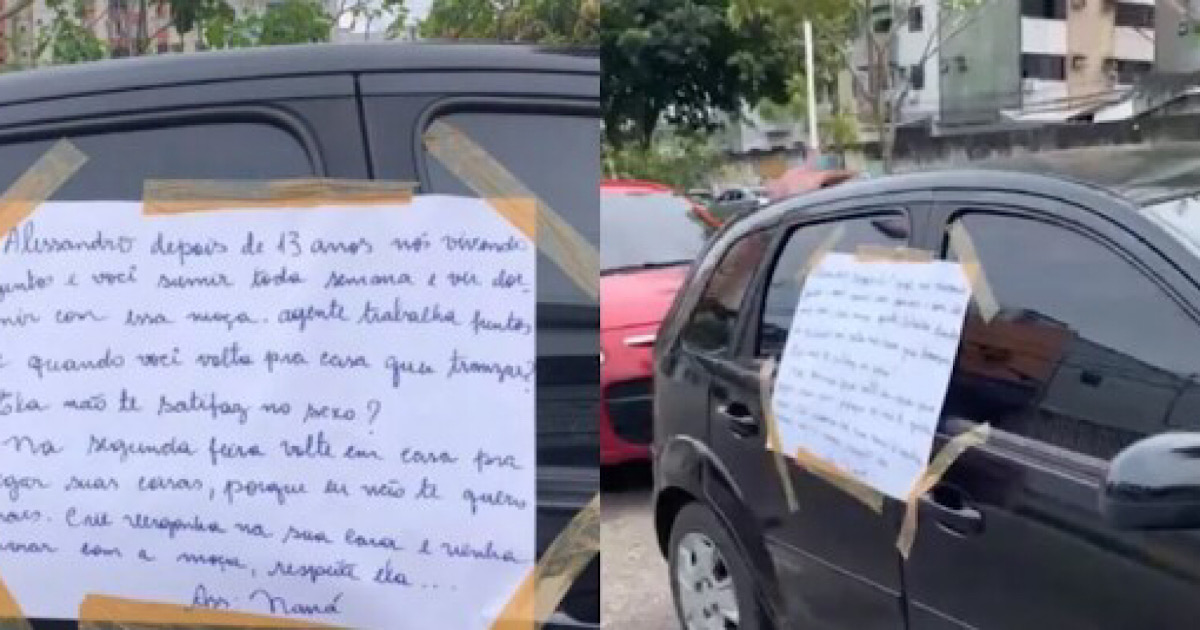 Alessandro depois de 13 anos nós vivendo
untos e você sumir toda semana e vir dor
mir com essa moça. agente trabalha juntos
e quando você volta pra casa quer tranzar?
Ela não te satifaz no sexo?
Na segunda feira volte em casa pra
egar suas coisas, porque eu não te quero
mais. Crie vergonha na sua cara e venha
morar com a moça, respeite ela...
Ass: Naná